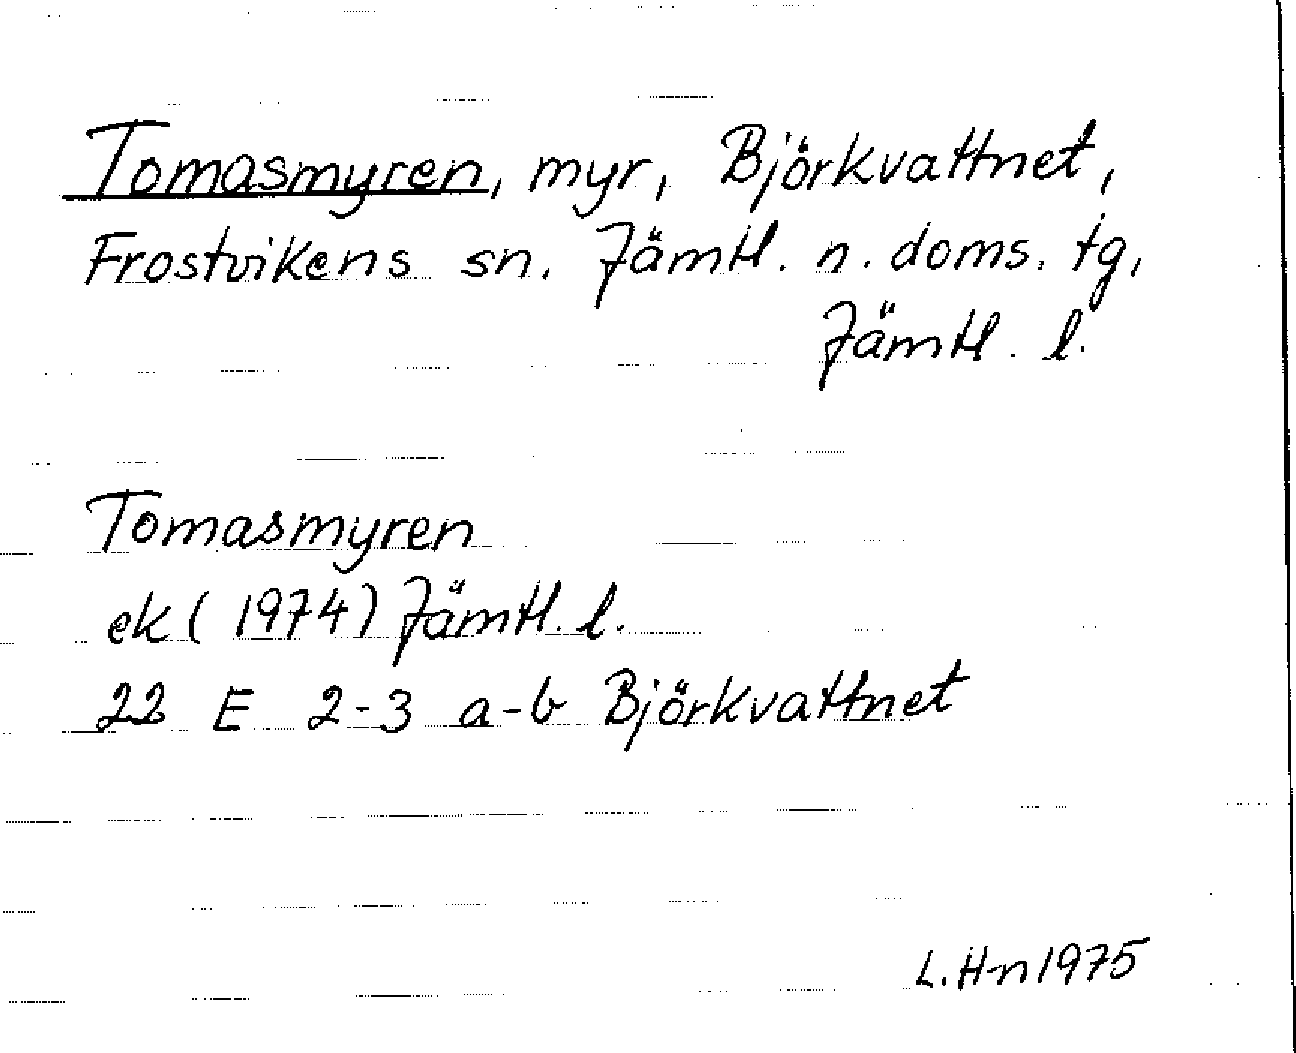 Tomasmyren, myr, Björkvattnet,
Frostvikens sn. Jämtl. n. doms. tg,
Jämtl. l.
Tomasmyren
ek (1974) Jämtl. l.
22 E 2-3 a-b Björkvattnet
L. H-n 1975